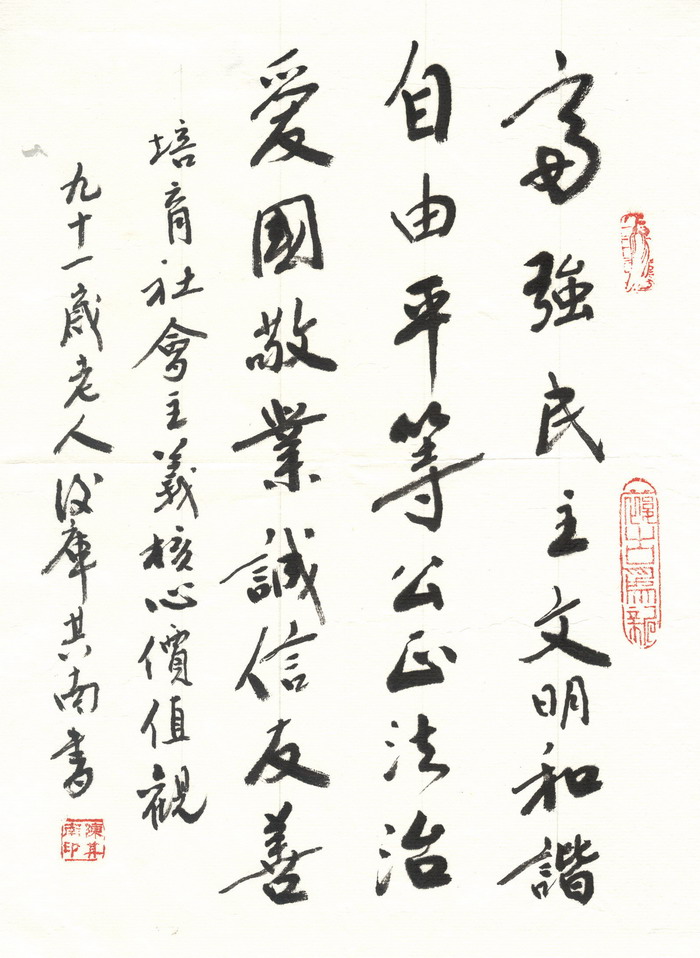 富強民主文明和諧
自由平等公正法治
愛國敬業誠信友善
培育社會主義核心價值觀
九十一歲老人庫其南書
陳其南印